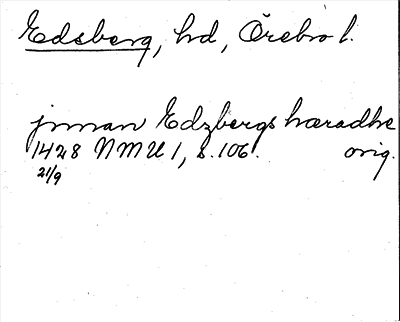 Edsberg, hd, Örebro l.
jnnan Edzbergs hæradhe
1428 NMU 1, s. 106. orig.
21/9